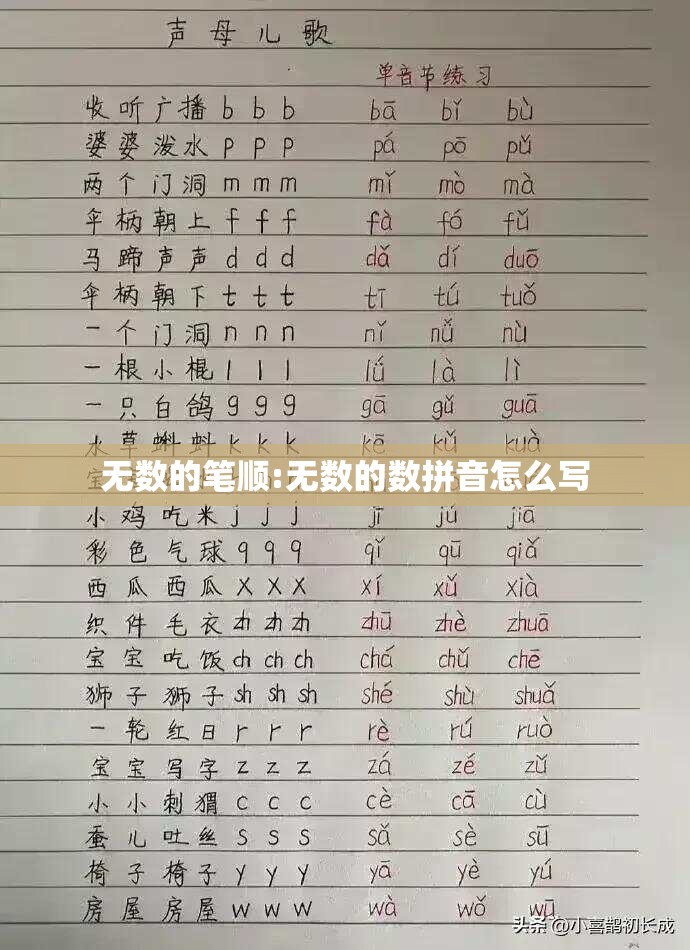 声母儿歌
单音节练习
收听广播 b b b bā bǐ bù
婆婆泼水 p p p pá pō pǔ
两个门洞 m m m mǐ mò mà
伞柄朝上 f f f fà fó fǔ
马蹄声声 d d d dǎ dí duō
伞柄朝下 t t t tī tú tuǒ
一个门洞 n n n nǐ nǚ nù
一根小棍 l l l lǘ là lì
一只白鸽 g g g gā gǔ guā
水草蝌蚪 k k k kē kǔ kuà
无数的笔顺:无数的数拼音怎么写
小鸡吃米 j j j jī jú jiā
彩色气球 q q q qǐ qū qiǎ
西瓜西瓜 x x x xí xǔ xià
织件毛衣 zh zh zh zhū zhè zhuā
宝宝吃饭 ch ch ch chá chǔ chē
狮子狮子 sh sh sh shé shù shuǎ
一轮红日 r r r rè rú ruò
宝宝写字 z z z zá zě zǔ
小小刺猬 c c c cè cā cù
蚕儿吐丝 s s s sǎ sè sū
椅子椅子 y y y yā yè yú
房屋房屋 w w w wà wǒ wū
头条 @小喜鹊初长成